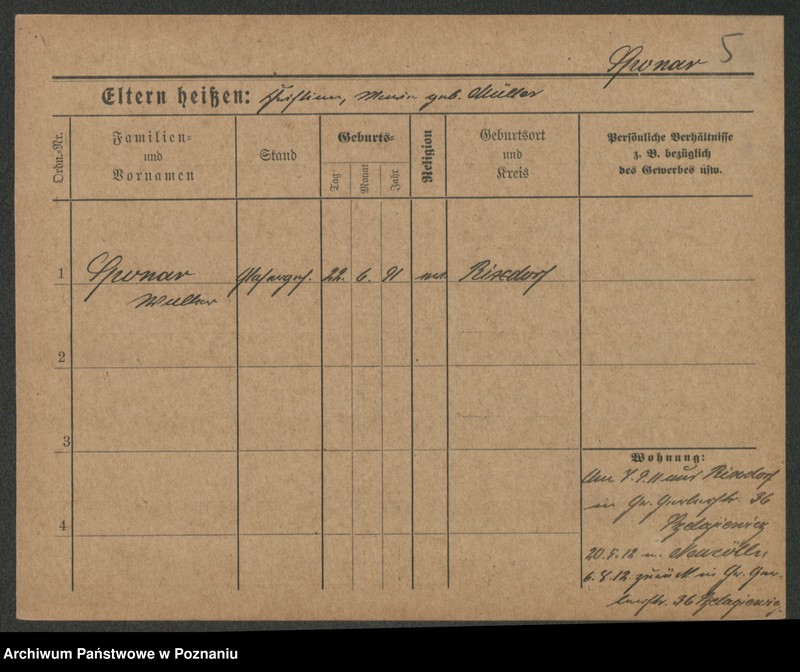 Sponar 5
Eltern heißen: Christian, Maria geb. Müller
Ordn.-Nr.
Familien- und Vornamen
Stand
Geburts-
Tag
Monat
Jahr
Religion
Geburtsort und Kreis
Persönliche Verhältnisse z. B. bezüglich des Gewerbes usw.
1 Sponar 22. 6. 91 Rixdorf
2
3
4
Wohnung:
Am 7.9.11 aus Rixdorf
in Gr. 36
20.5.12 n. Neucölln
6.8.12 zurück in Gr.
36
Archiwum Państwowe w Poznaniu